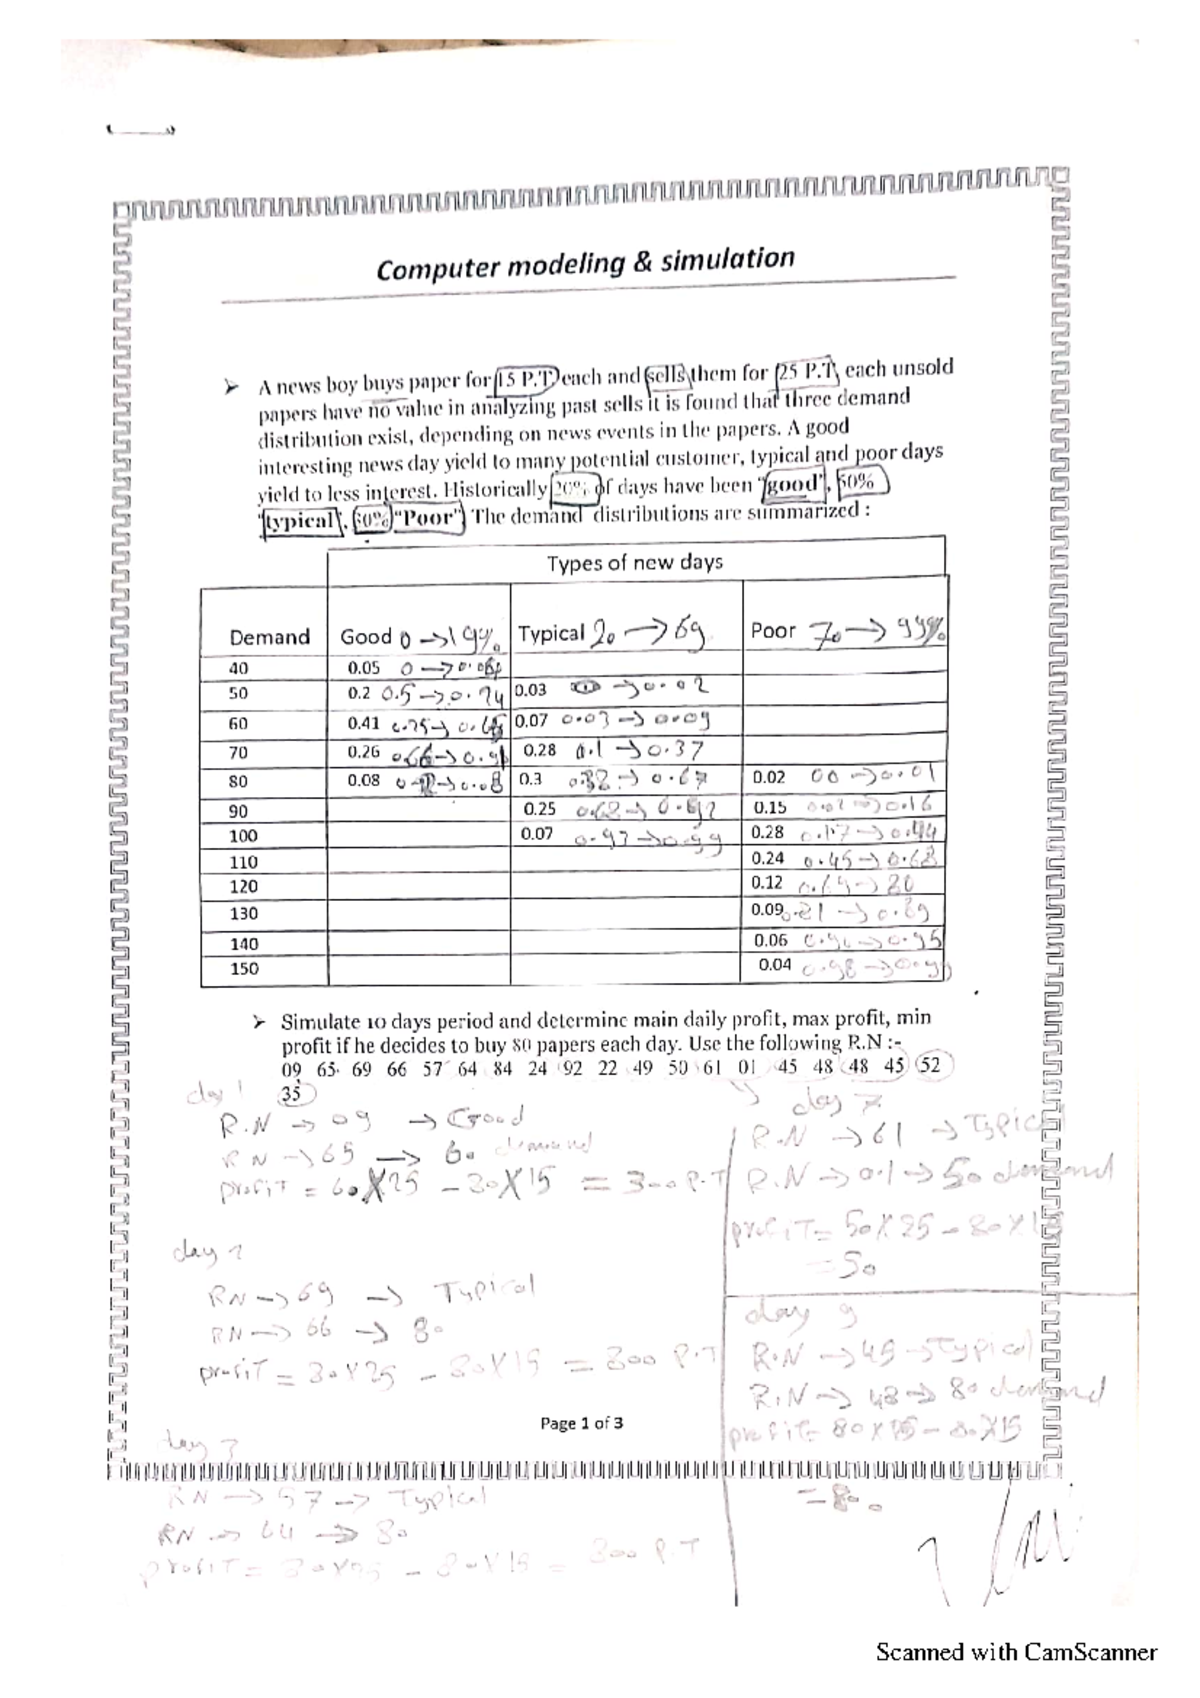 Computer modeling & simulation
➢ A news boy buys paper for 15 P.T each and sells them for 25 P.T, each unsold
papers have no value in analyzing past sells it is found that three demand
distribution exist, depending on news events in the papers. A good
interesting news day yield to many potential customer, typical and poor days
yield to less interest. Historically 20% of days have been "good", 50%
"typical", 30% "Poor" The demand distributions are summarized :
Types of new days
Demand Good 0 → 19% Typical 20 → 69 Poor 70 → 99%
40 0.05 0 →
50 0.2 0.5 → 0.24 0.03 → 0.02
60 0.41 0.25 → 0.07 0.03 → 0.09
70 0.26 0.66 → 0.28 0.1 → 0.37
80 0.08 → 0.08 0.3 0.38 → 0.67 0.02 00 → 0.01
90 0.25 0.68 → 0.15 0.02 → 0.16
100 0.07 0.93 → 0.99 0.28 0.17 → 0.44
110 0.24 0.45 → 0.68
120 0.12 0.69 → 80
130 0.09 0.81 → 0.89
140 0.06 → 0.95
150 0.04 →
➢ Simulate 10 days period and determine main daily profit, max profit, min
profit if he decides to buy 80 papers each day. Use the following R.N :-
09 65 69 66 57 64 84 24 92 22 49 50 61 01 45 48 48 45 52
35
day 1
R.N → 09 → Good
RN → 65 → 60 demand
profit = 60 X 25 - 80 X 15 = 300 P.T
day 2
RN → 69 → Typical
RN → 66 → 80
profit = 80 X 25 - 80 X 15 = 800 P.T
day 3
RN → 57 → Typical
RN → 64 → 80
profit = 80 X 25 - 80 X 15 = 800 P.T
day 7
R.N → 61 → Typical
R.N → 0.1 → 50 demand
profit = 50 X 25 - 80 X 15
= 50
day 9
R.N → 45 → Typical
R.N → 48 → 80 demand
profit = 80 X 25 - 80 X 15
= 800
Page 1 of 3
Scanned with CamScanner